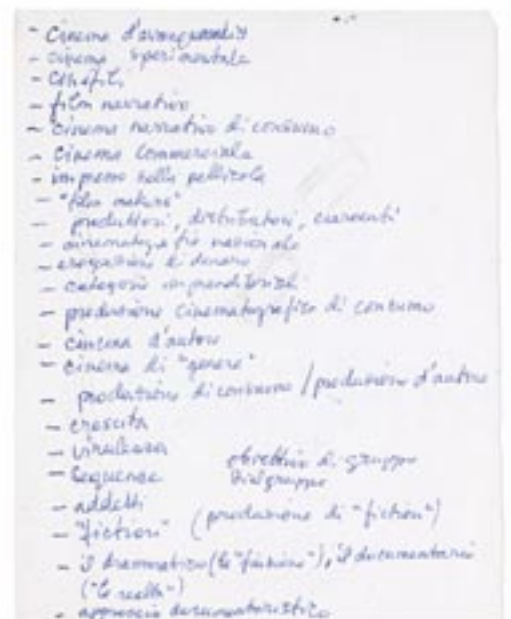 - Cinema d'avanguardia
- cinema sperimentale
- cinefili
- film narrativo
- Cinema narrativo di consumo
- Cinema Commerciale
- impresso sulla pellicola
- "film makers"
- produttori, distributori, esercenti
- cinematografia nazionale
- erogazione di denaro
- categorie imprenditoriali
- produzione cinematografica di consumo
- cinema d'autore
- cinema di "genere"
- produzione di consumo / produzione d'autore
- crescita
- vivalezza
- Sequenza obiettivo di gruppo
- addetti
- "fiction" (produzione di "fiction")
- il drammatico (la "finzione"), il documentario
("la realtà")
- approccio documentaristico